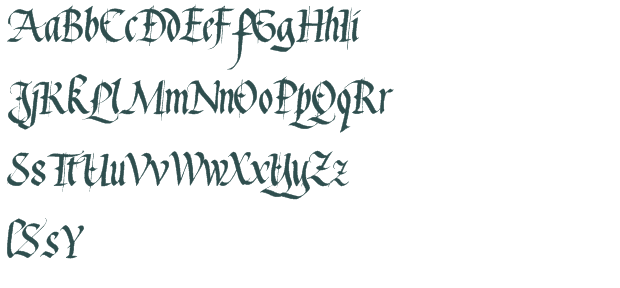 AaBbCcDdEeFfGgHhIi
JjKkLlMmNnOoPpQqRr
SsTtUuVvWwXxYyZz
lSsY